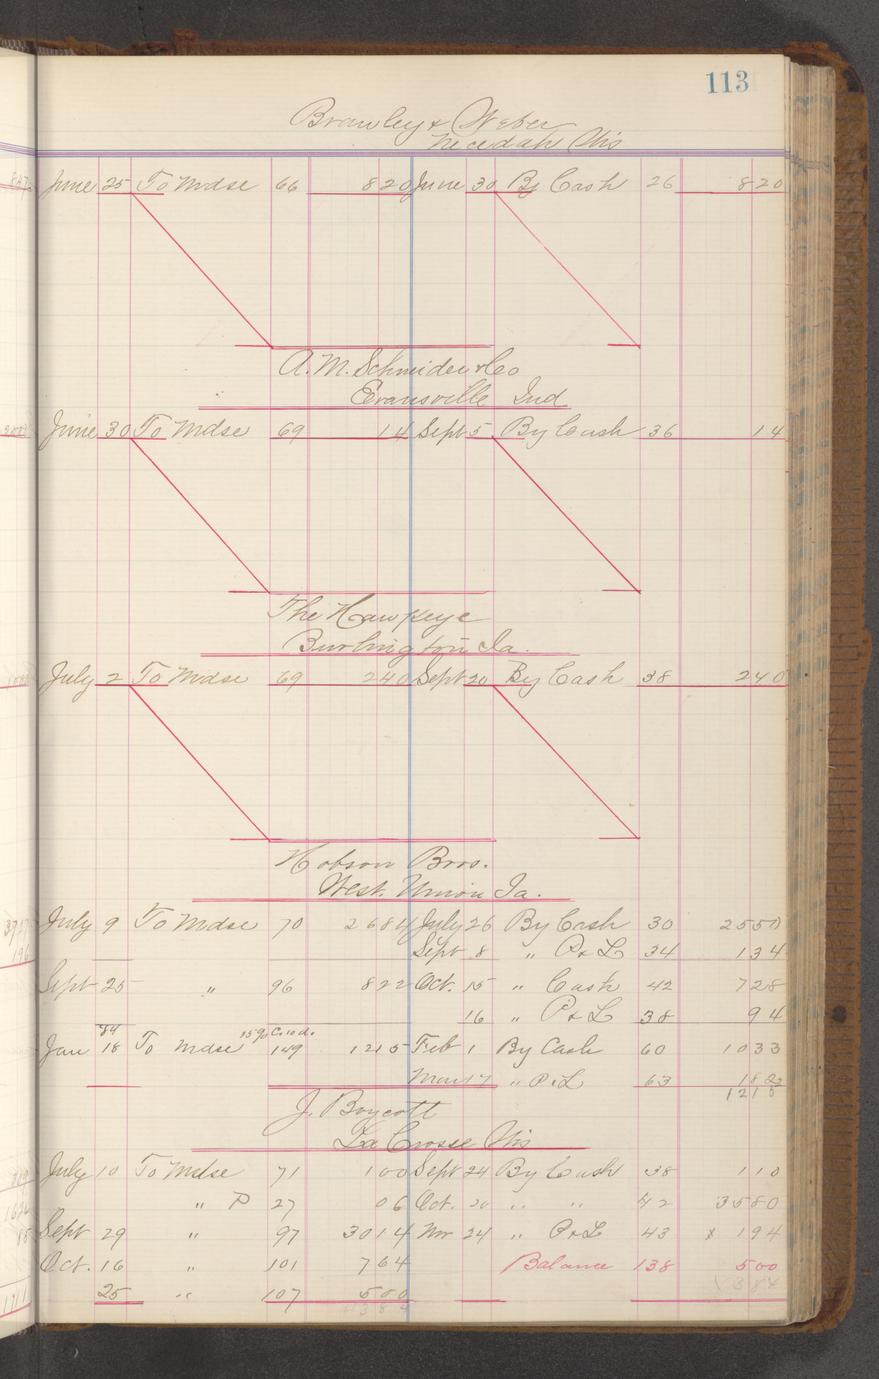 113
Brawley & Weber
Necedah Wis
June 25 To Mdse 66 820 June 30 By Cash 26 820
A. M. Schmider & Co
Evansville Ind
June 30 To Mdse 69 14 Sept 5 By Cash 36 14
The Hawkeye
Burlington Ia.
July 2 To Mdse 69 240 Sept 20 By Cash 38 240
Hobson Bros.
West Union Ia.
July 9 To Mdse 70 2684 July 26 By Cash 30 2550
Sept 8 " P & L 34 134
Sept 25 " 96 822 Oct. 15 " Cash 42 728
16 " P & L 38 94
84
Jan 18 To Mdse 15% 149 1215 Feb 1 By Cash 60 1033
Mar 17 " P & L 63 182
1215
J. Boycott
La Crosse Wis
July 10 To Mdse 71 100 Sept 24 By Cash 38 110
" P 27 06 Oct. 20 " " 42 3580
Sept 29 " 97 3014 Nov 24 " P & L 43 x 194
Oct. 16 " 101 764 Balance 138 500
25 " 107 500